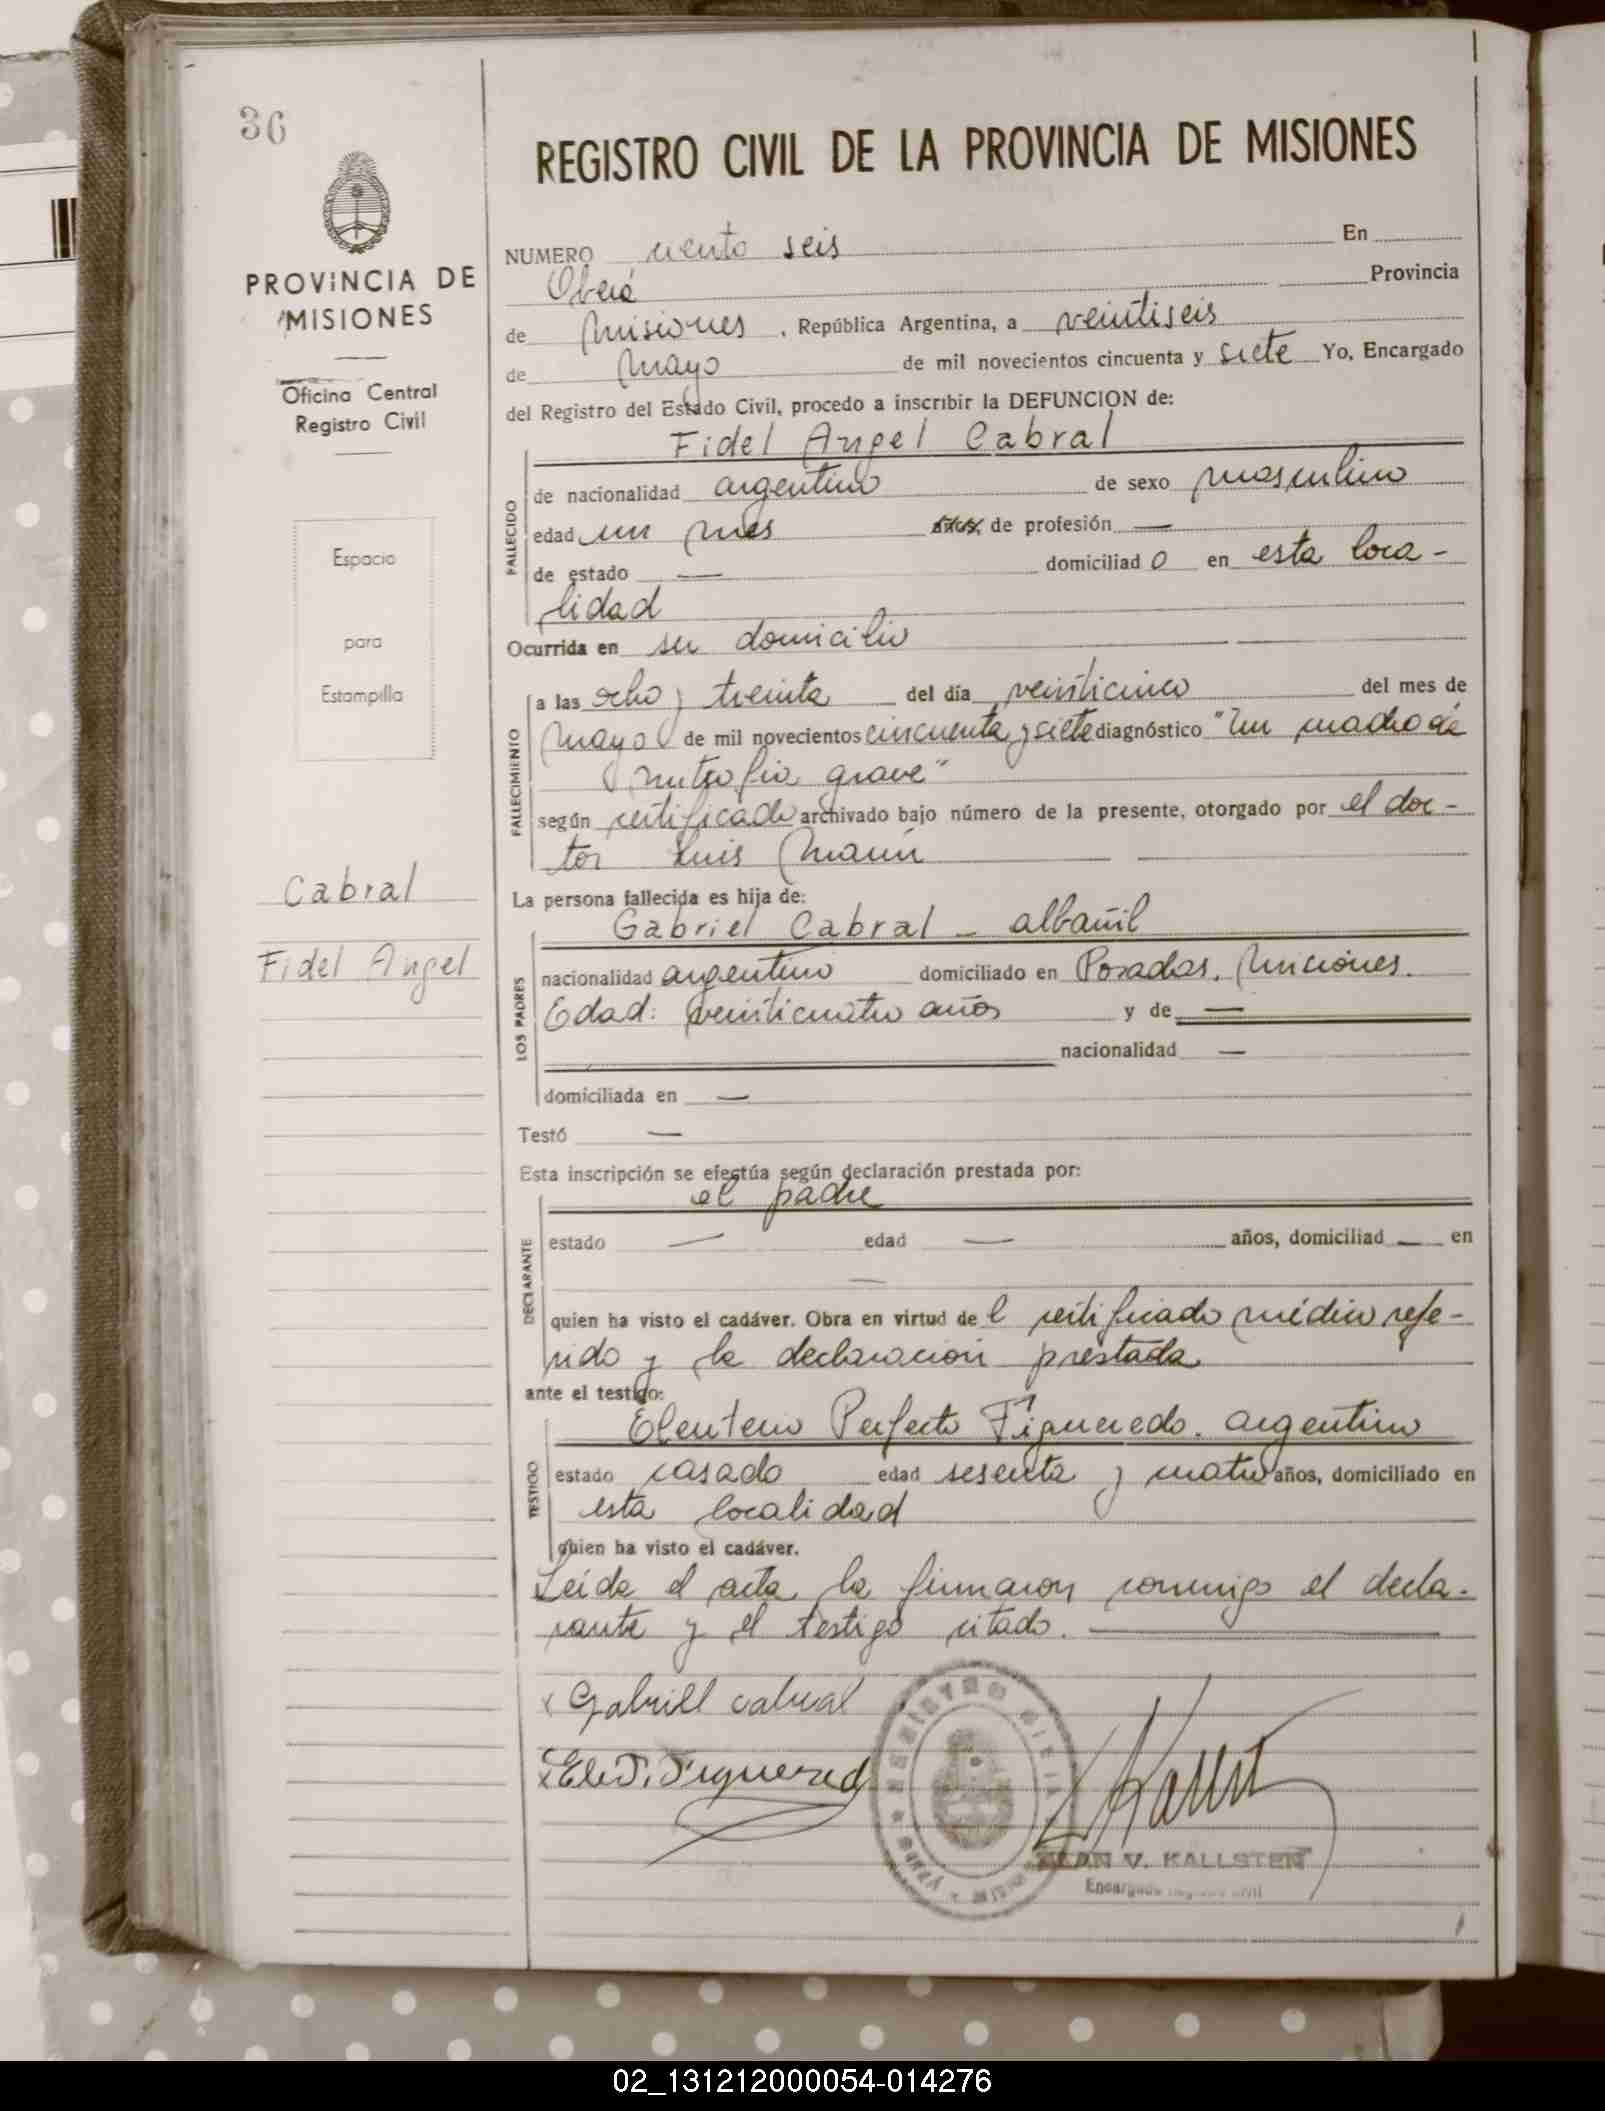 36
REGISTRO CIVIL DE LA PROVINCIA DE MISIONES
PROVINCIA DE
MISIONES
Oficina Central
Registro Civil
Espacio
para
Estampilla
Cabral
Fidel Angel
NUMERO ciento seis En
Oberá Provincia
de Misiones , República Argentina, a veintiseis
de Mayo de mil novecientos cincuenta y siete Yo, Encargado
del Registro del Estado Civil, procedo a inscribir la DEFUNCION de:
Fidel Angel Cabral
FALLECIDO
de nacionalidad argentino de sexo masculino
edad un mes años, de profesión —
de estado — domiciliad o en esta loca -
lidad
Ocurrida en su domicilio
FALLECIMIENTO
a las ocho y treinta del día veinticinco del mes de
Mayo de mil novecientos cincuenta y siete diagnóstico "Un
grave"
según certificado archivado bajo número de la presente, otorgado por el doc -
tor Luis Marín
La persona fallecida es hija de:
LOS PADRES
Gabriel Cabral - albañil
nacionalidad argentino domiciliado en Posadas. Misiones.
Edad: veinticuatro años y de —
nacionalidad —
domiciliada en —
Testó —
Esta inscripción se efectúa según declaración prestada por:
el padre
DECLARANTE
estado — edad — años, domiciliad — en
—
quien ha visto el cadáver. Obra en virtud de l certificado médico refe -
rido y la declaración prestada
ante el testigo:
TESTIGO
Eleuterio Perfecto Figueredo. argentino
estado casado edad sesenta y cuatro años, domiciliado en
esta localidad
quien ha visto el cadáver.
Leída el acta la firmaron conmigo el decla -
rante y el testigo citado.
x Gabriell cabral
x Ele.P. Figueredo
REGISTRO CIVIL
ALAN V. KALLSTEN
Encargado Registro Civil
02_131212000054-014276